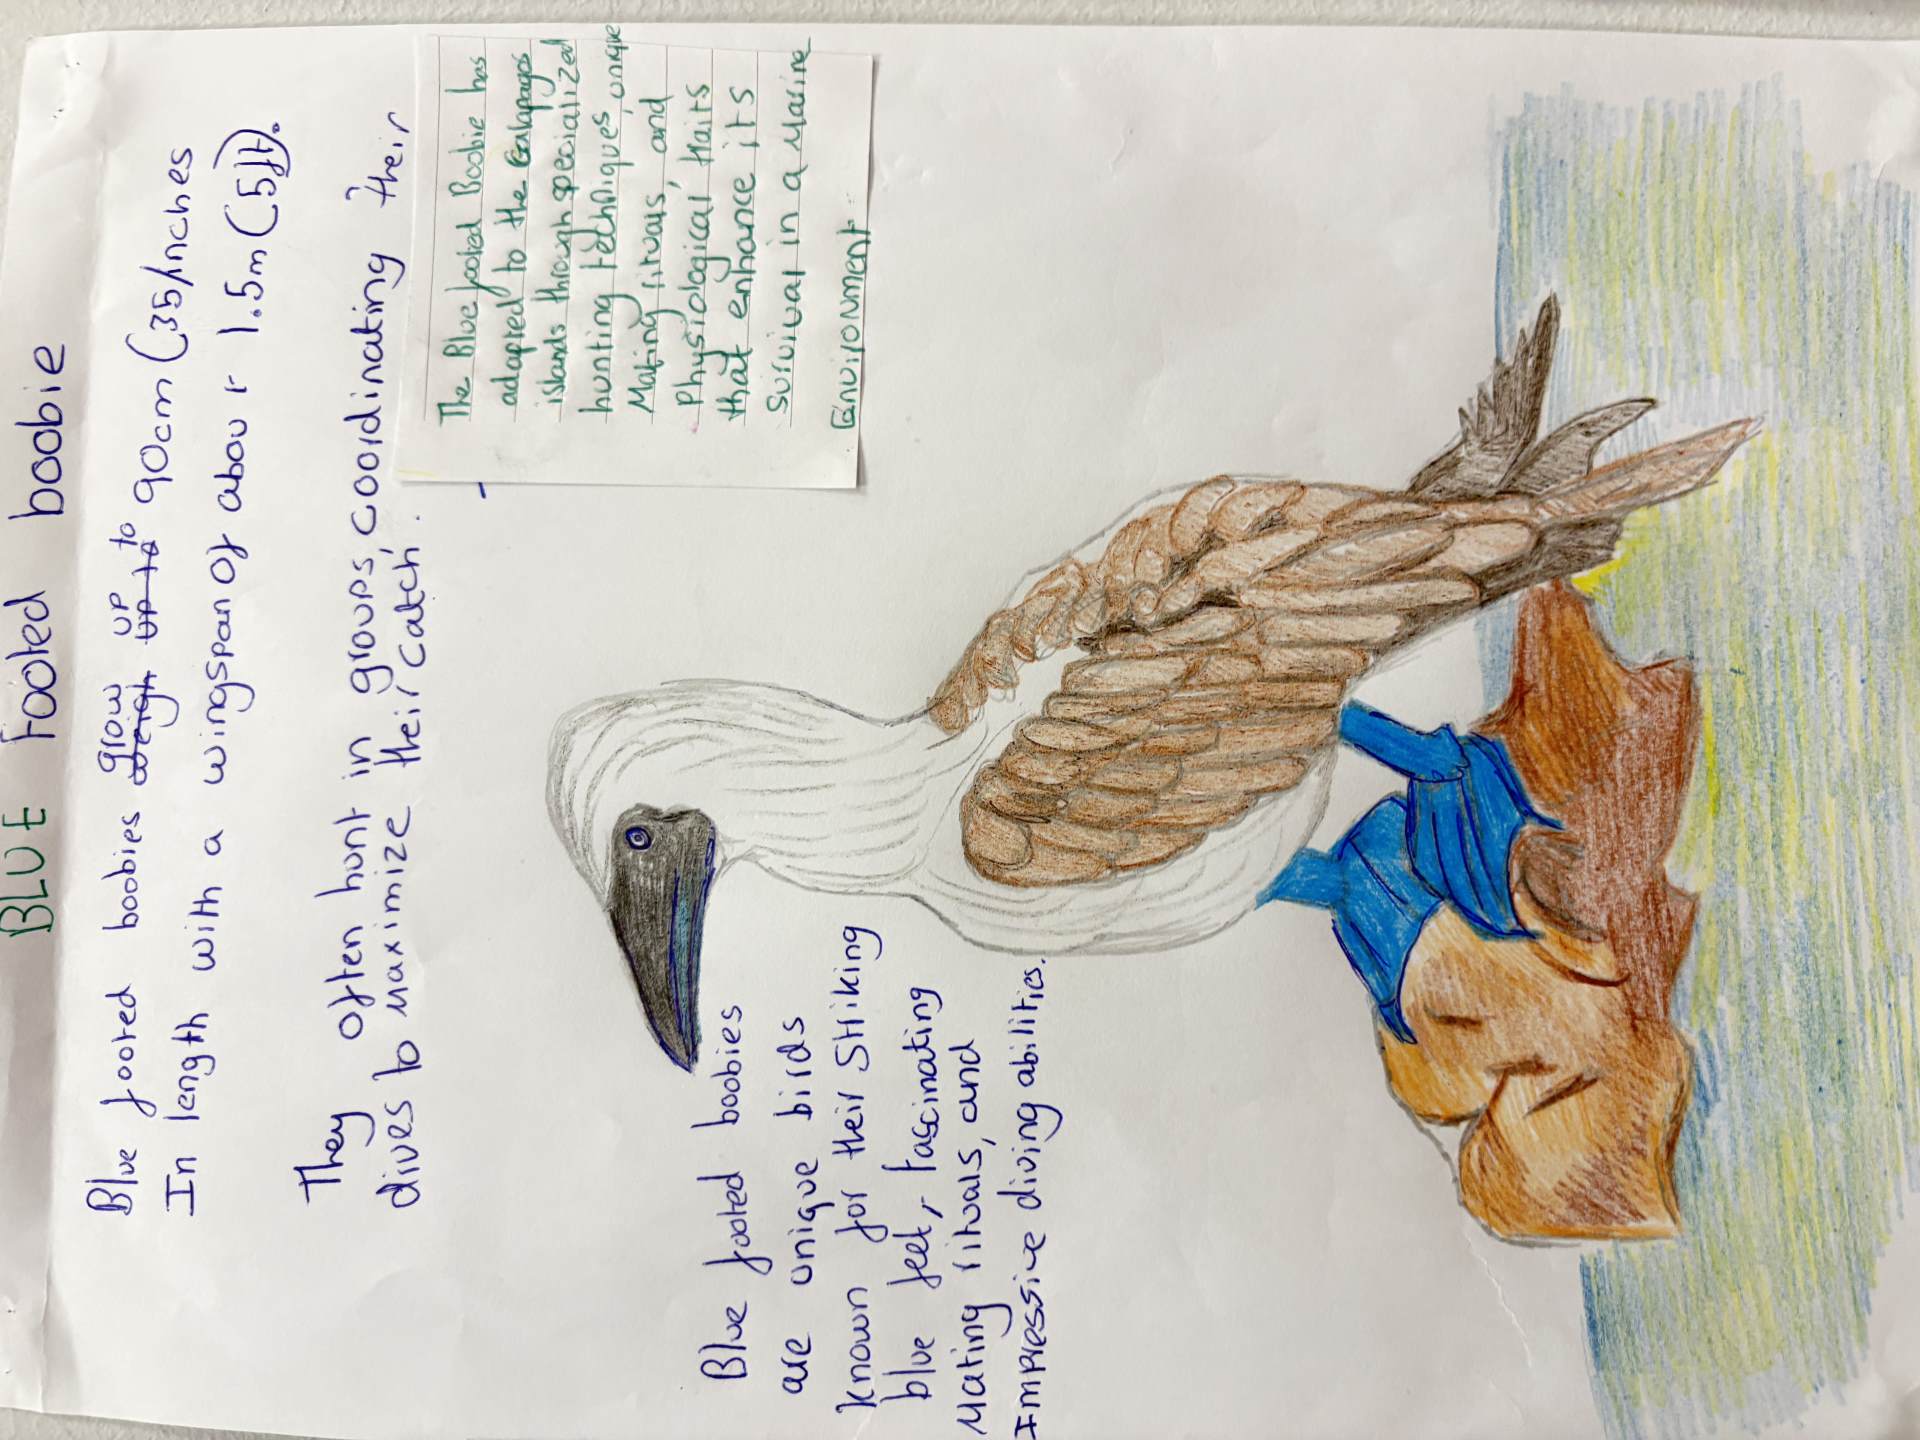 BLUE Footed boobie
Blue footed boobies weigh grow up to up to 90cm (35 inches
In length with a wingspan of about 1.5m (5ft).
They often hunt in groups, coordinating their
dives to maximize their catch.
The Blue footed Boobie has
adapted to the Galapagos
islands through specialized
hunting techniques, unique
Mating rituals, and
Physiological traits
that enhance its
Survival in a Marine
Environment
Blue footed boobies
are unique birds
known for their striking
blue feet, fascinating
Mating rituals, and
Impressive diving abilities.